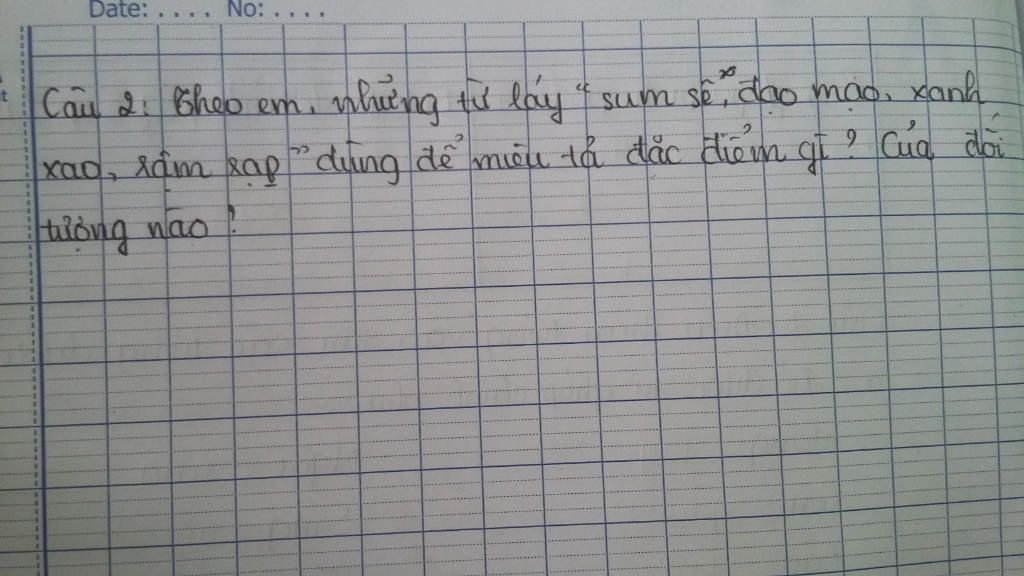 Date: . . . . No: . . . .
Câu 2: Theo em, những từ láy "sum sê, dạo mạo, xanh
xao, rậm rạp" dùng để miêu tả đặc điểm gì? Của đối
tượng nào?